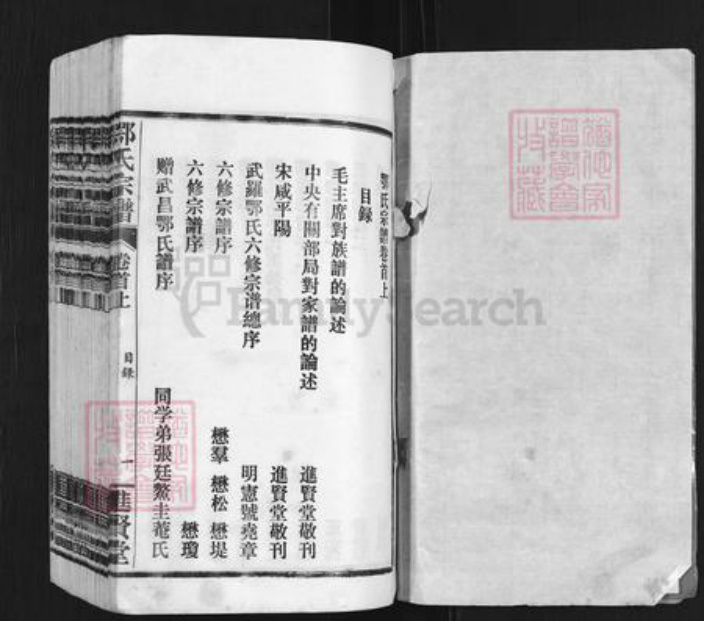 鄂氏宗譜卷首上
目録
毛主席對族譜的論述
中央有關部局對家譜的論述 進賢堂敬刊
宋咸平陽 進賢堂敬刊
武羅鄂氏六修宗谱總序 明憲號堯章
六修宗譜序 懋羣 懋松 懋堤
六修宗譜序 懋瓊
赠武昌鄂氏譜序 同学弟張廷鰲圭菴氏
鄂氏宗譜
卷首上
目録
一
進賢堂
FamilySearch